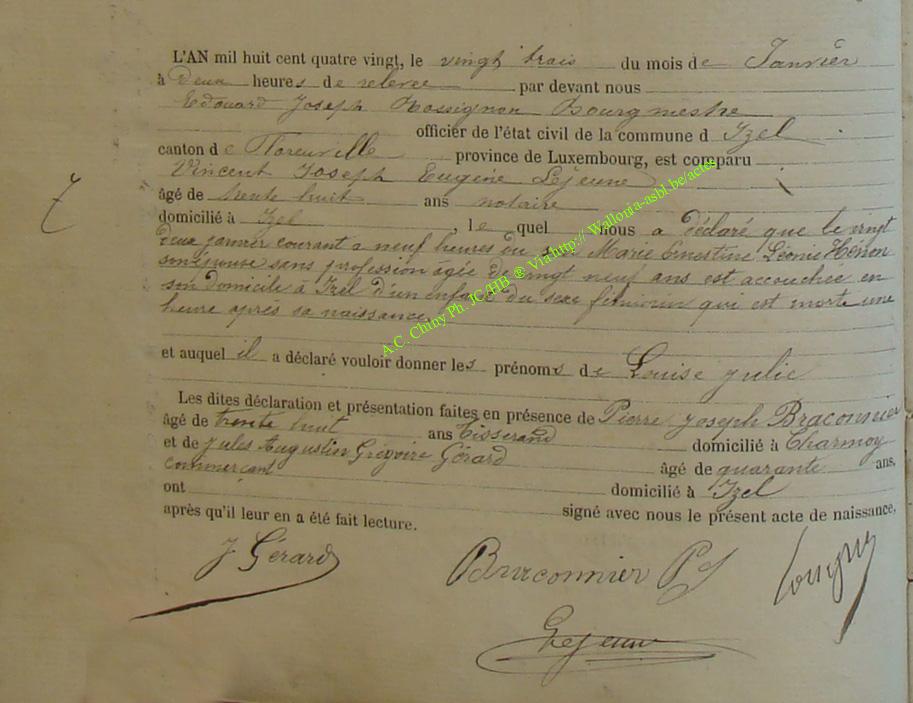 L'AN mil huit cent quatre vingt, le vingt trois du mois de Janvier
à deux heures de relevée par devant nous
Edouard Joseph Rossignon Bourgmestre
officier de l'état civil de la commune d Izel
canton de Florenville province de Luxembourg, est comparu
Vincent Joseph Eugène Lejeune
7
âgé de trente huit ans notaire
domicilié à Izel, le quel nous a déclaré que le vingt
deux janvier courant a neuf heures du Marie Ernestine Léonie Henon
son épouse sans profession âgée de vingt neuf ans est accouchée en
son domicile à Izel d'un enfant du sexe féminin qui est morte une
heure après sa naissance.
et auquel il a déclaré vouloir donner les prénoms de Louise Julie
Les dites déclaration et présentation faites en présence de Pierre Joseph Braconnier
âgé de trente huit ans Tisserand domicilié à Charmoy
et de Jules Augustin Grégoire Gérard âgé de quarante ans,
commerçant domicilié à Izel
ont signé avec nous le présent acte de naissance,
après qu'il leur en a été fait lecture.
J Gérard Braconnier PJ
Lejeune
A.C. Chiny Ph. JC/HB ® Via http:// Wallonia-asbl.be/actes